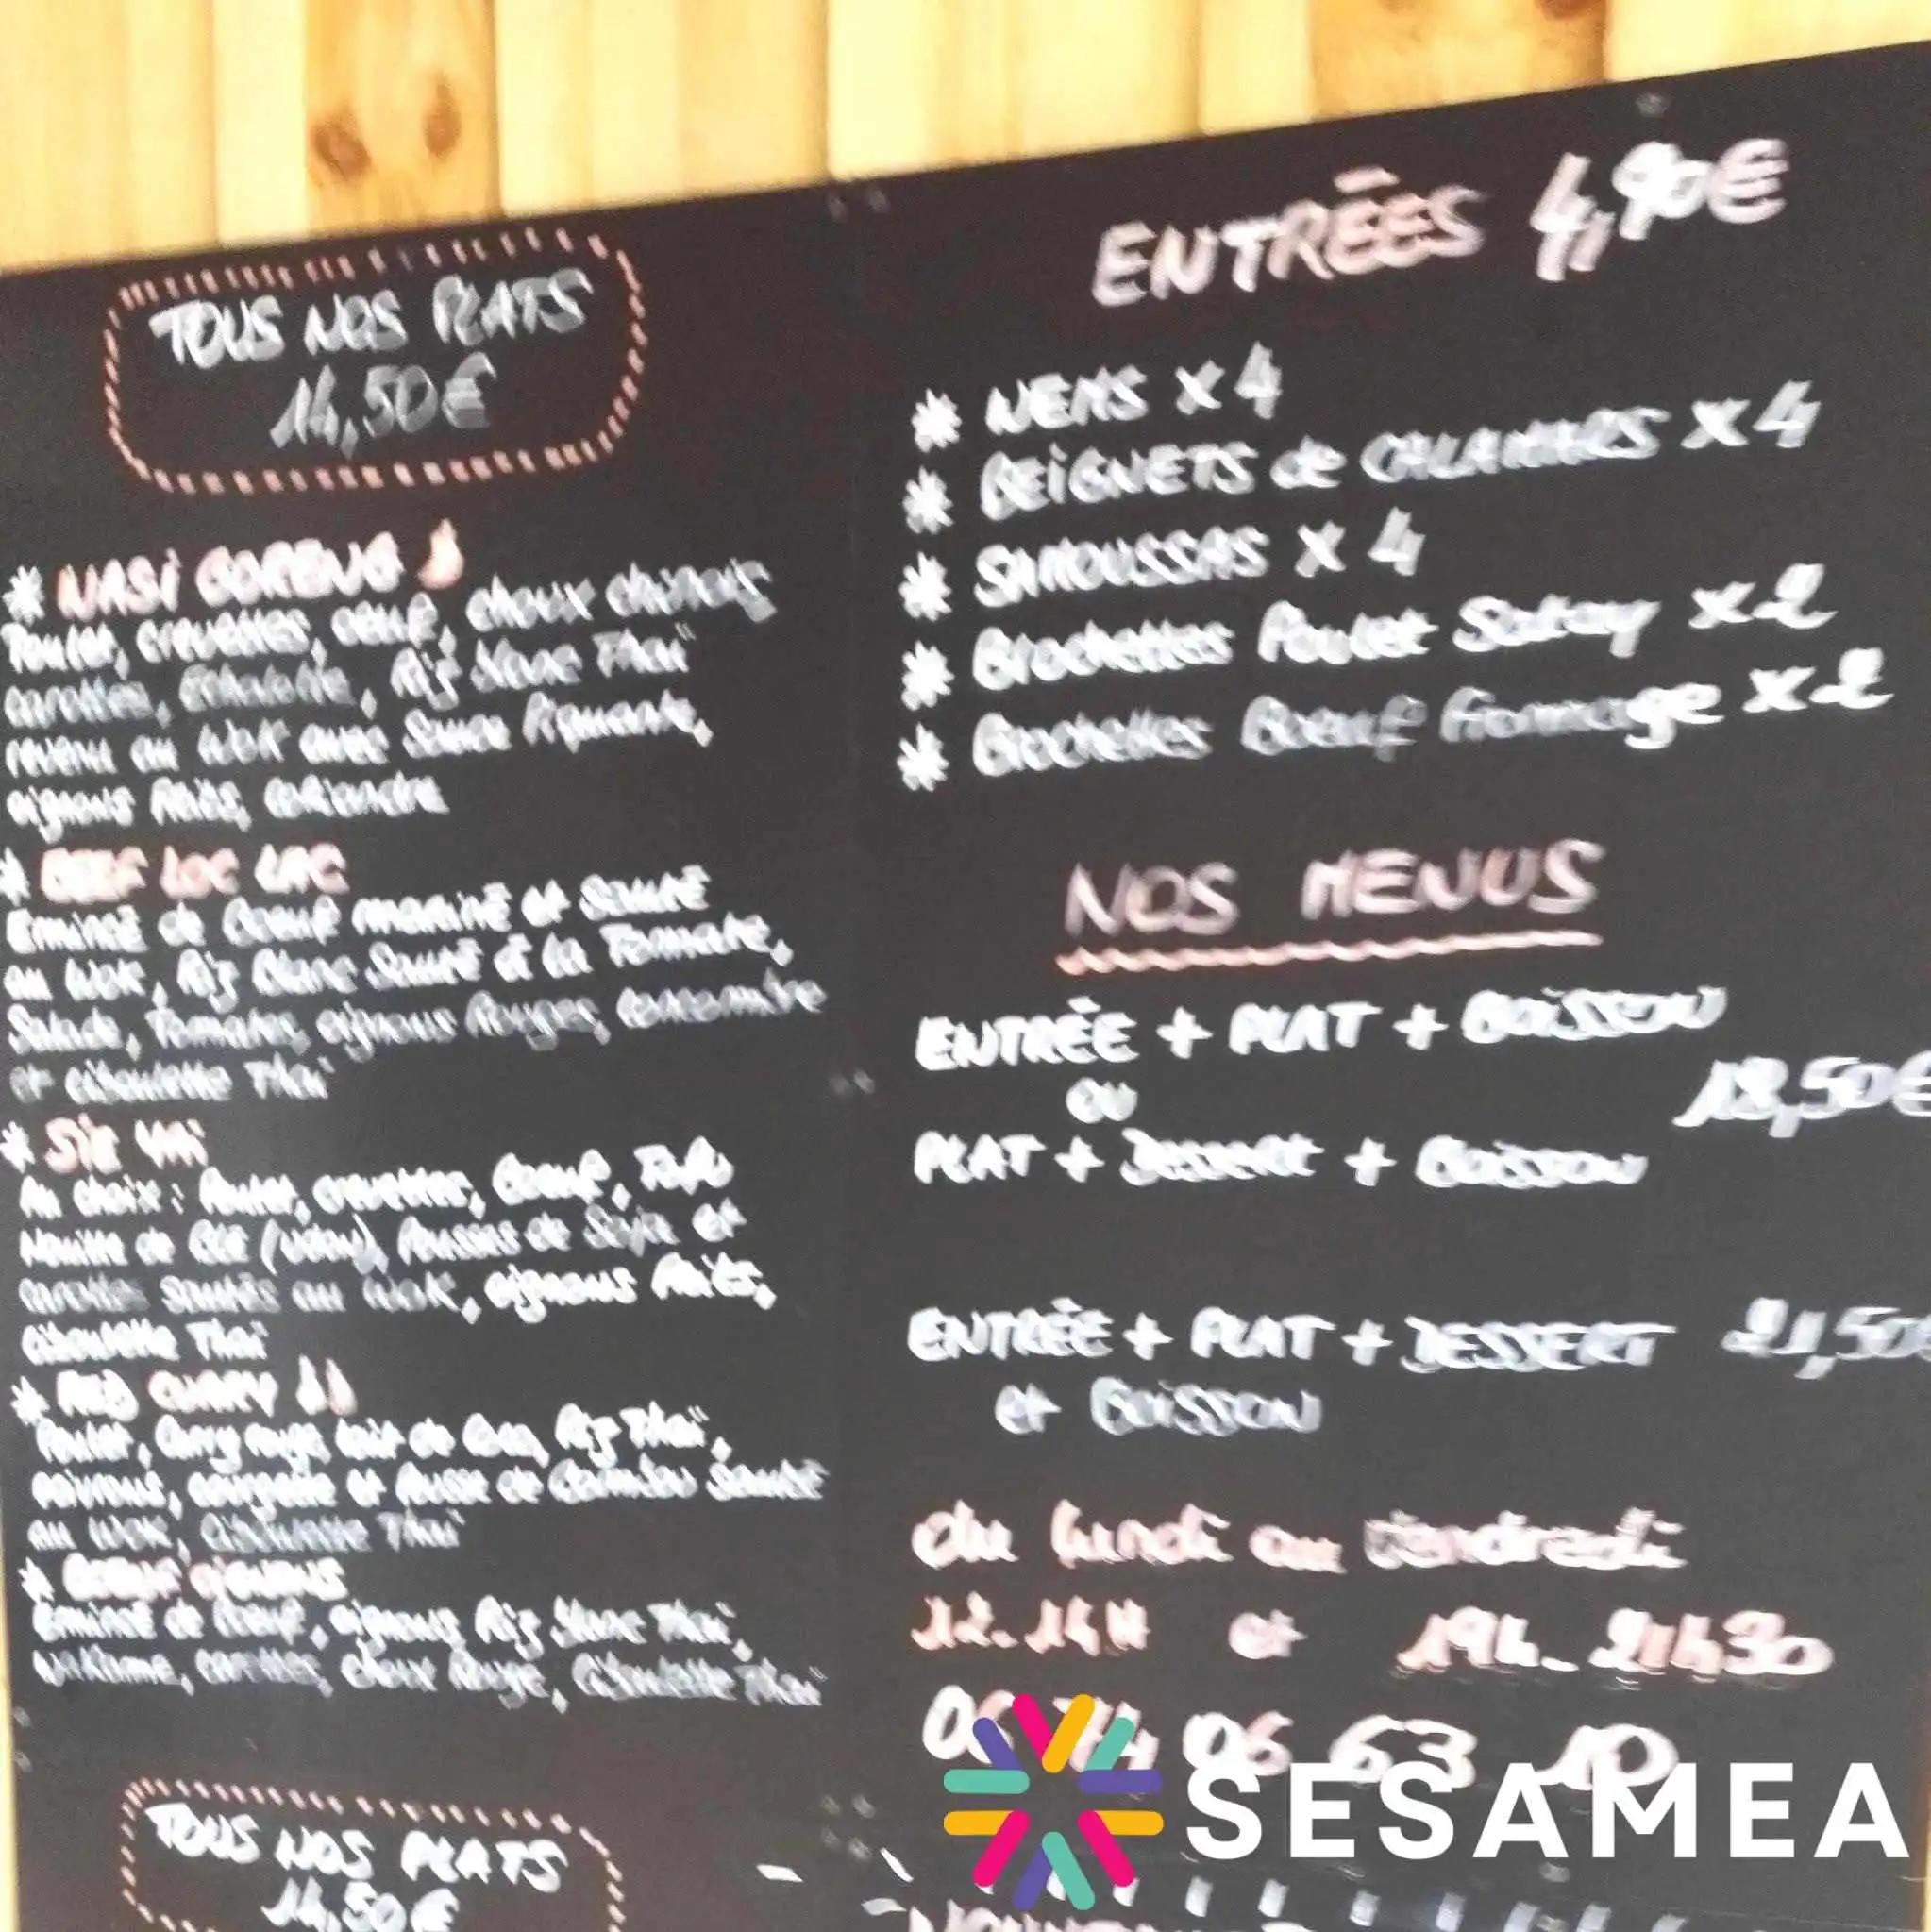 TOUS NOS PLATS
14,50€
* NASI GORENG
Poulet, crevettes, oeuf, choux chinois
carottes, ciboulette, Riz blanc Thaï
revenu au Wok avec Sauce Piquante,
oignons frits, coriandre
* BEEF LOC LAC
Emincé de Boeuf mariné et Sauté
au Wok, Riz Blanc Sauté à la Tomate,
Salade, Tomates, oignons Rouges, concombre
et ciboulette Thaï
* SIE MI
Au choix : Poulet, crevettes, Boeuf, Tofu
Nouille de BLÉ (UDON), Pousses de Soja et
carottes sautés au Wok, oignons frits,
Ciboulette Thaï
* RED CURRY
Poulet, Curry rouge, lait de Coco, Riz Thaï,
poivrons, courgette et Pousse de Bambou Sauté
au WOK, Ciboulette Thaï
* BOEUF OIGNONS
Emincé de Boeuf, oignons, Riz blanc Thaï,
wakame, carottes, choux Rouge, Ciboulette Thaï
TOUS NOS PLATS
14,50€
ENTRÉES 4,90€
* NEMS x 4
* BEIGNETS de CALAMARS x 4
* SAMOUSSAS x 4
* Brochettes Poulet Satay x 2
* Brochettes Boeuf Fromage x 2
NOS MENUS
ENTRÉE + PLAT + BOISSON
OU
18,50€
PLAT + DESSERT + BOISSON
ENTRÉE + PLAT + DESSERT 21,50€
et BOISSON
du lundi au Vendredi
12-14H et 19h-21h30
06 74 06 63 10
SESAMEA